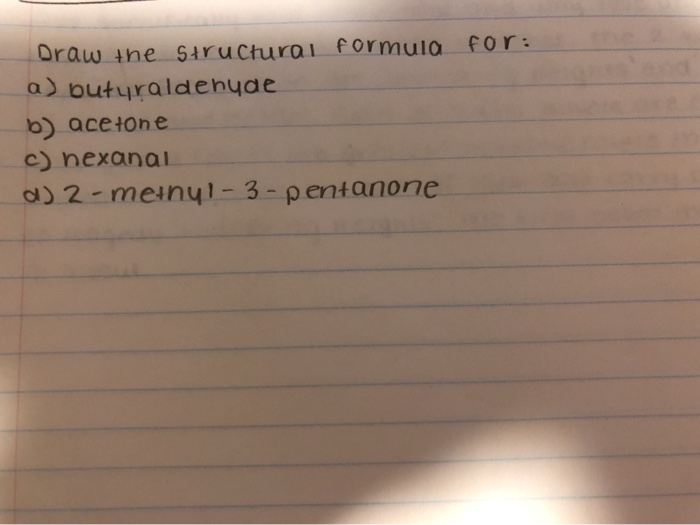 Draw the structural formula for:
a) butyraldehyde
b) acetone
c) hexanal
d) 2-methyl-3-pentanone